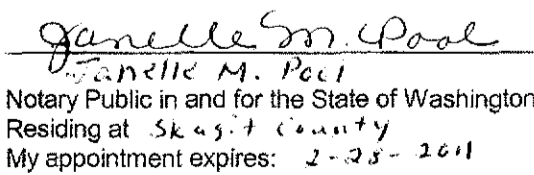 Janelle M. Pool
Janelle M. Pool
Notary Public in and for the State of Washington
Residing at Skagit County
My appointment expires: 2-28-2011